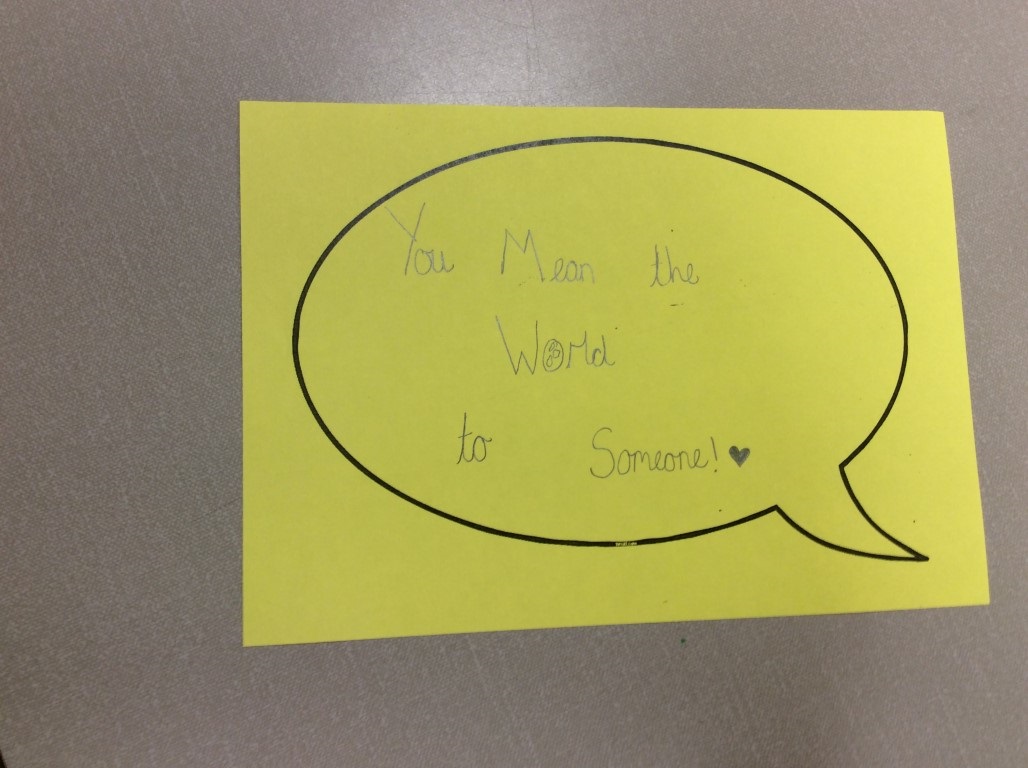 You Mean the
World
to Someone! ♥